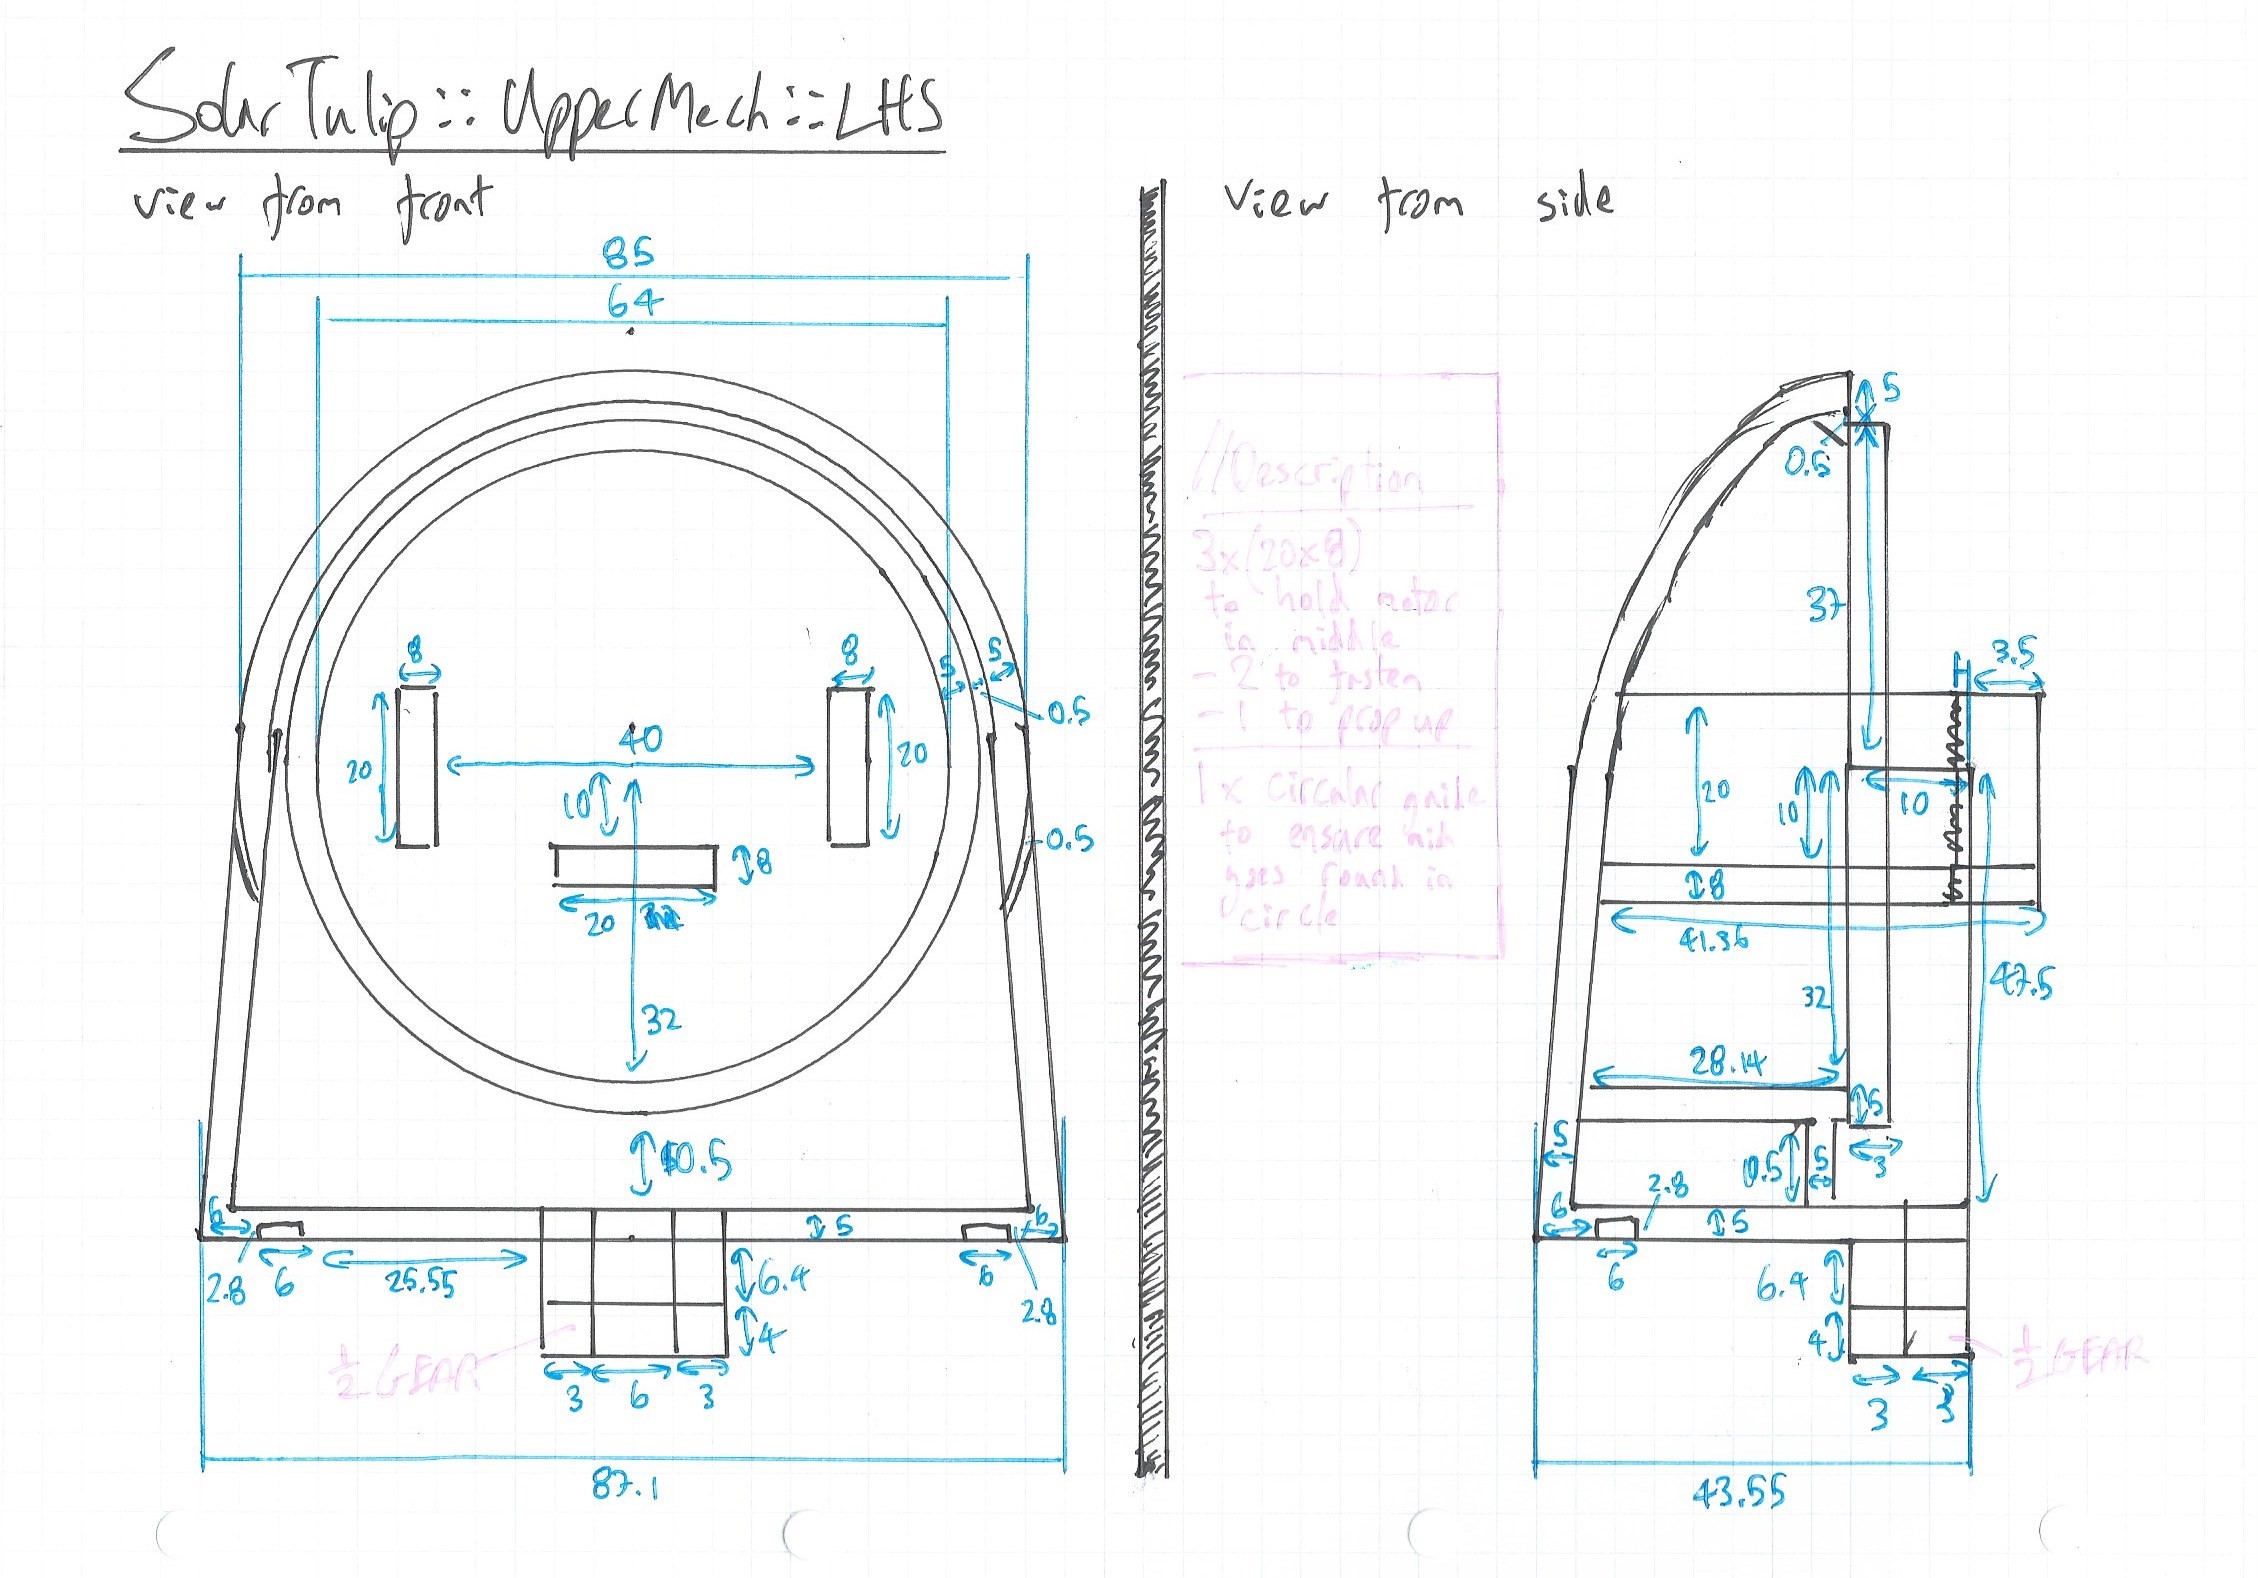 SolarTulip::UpperMech::LHS
view from front
85
64
8
8
5
5
0.5
20
40
20
10
0.5
8
20
32
10.5
6
6
5
2.8
6
25.55
6.4
6
2.8
4
1/2 GEAR
3
6
3
87.1
//Description
3x(20x8)
to hold motor
in middle
- 2 to fasten
- 1 to prop up
1x circular guide
to ensure
goes round in
circle
view from side
5
0.5
37
3.5
20
10
10
8
41.36
47.5
32
28.14
5
5
0.5
5
3
2.8
6
5
6
6.4
4
1/2 GEAR
3
3
43.55